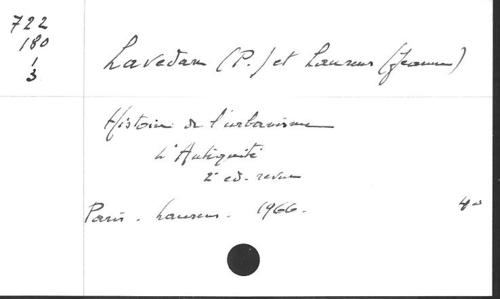 722
180
1
3
Lavedan (P.) et Laurens (Jeanne)
Histoire de l'urbanisme
L'Antiquité
2e ed. revue
Paris. Laurens. 1966.
4°